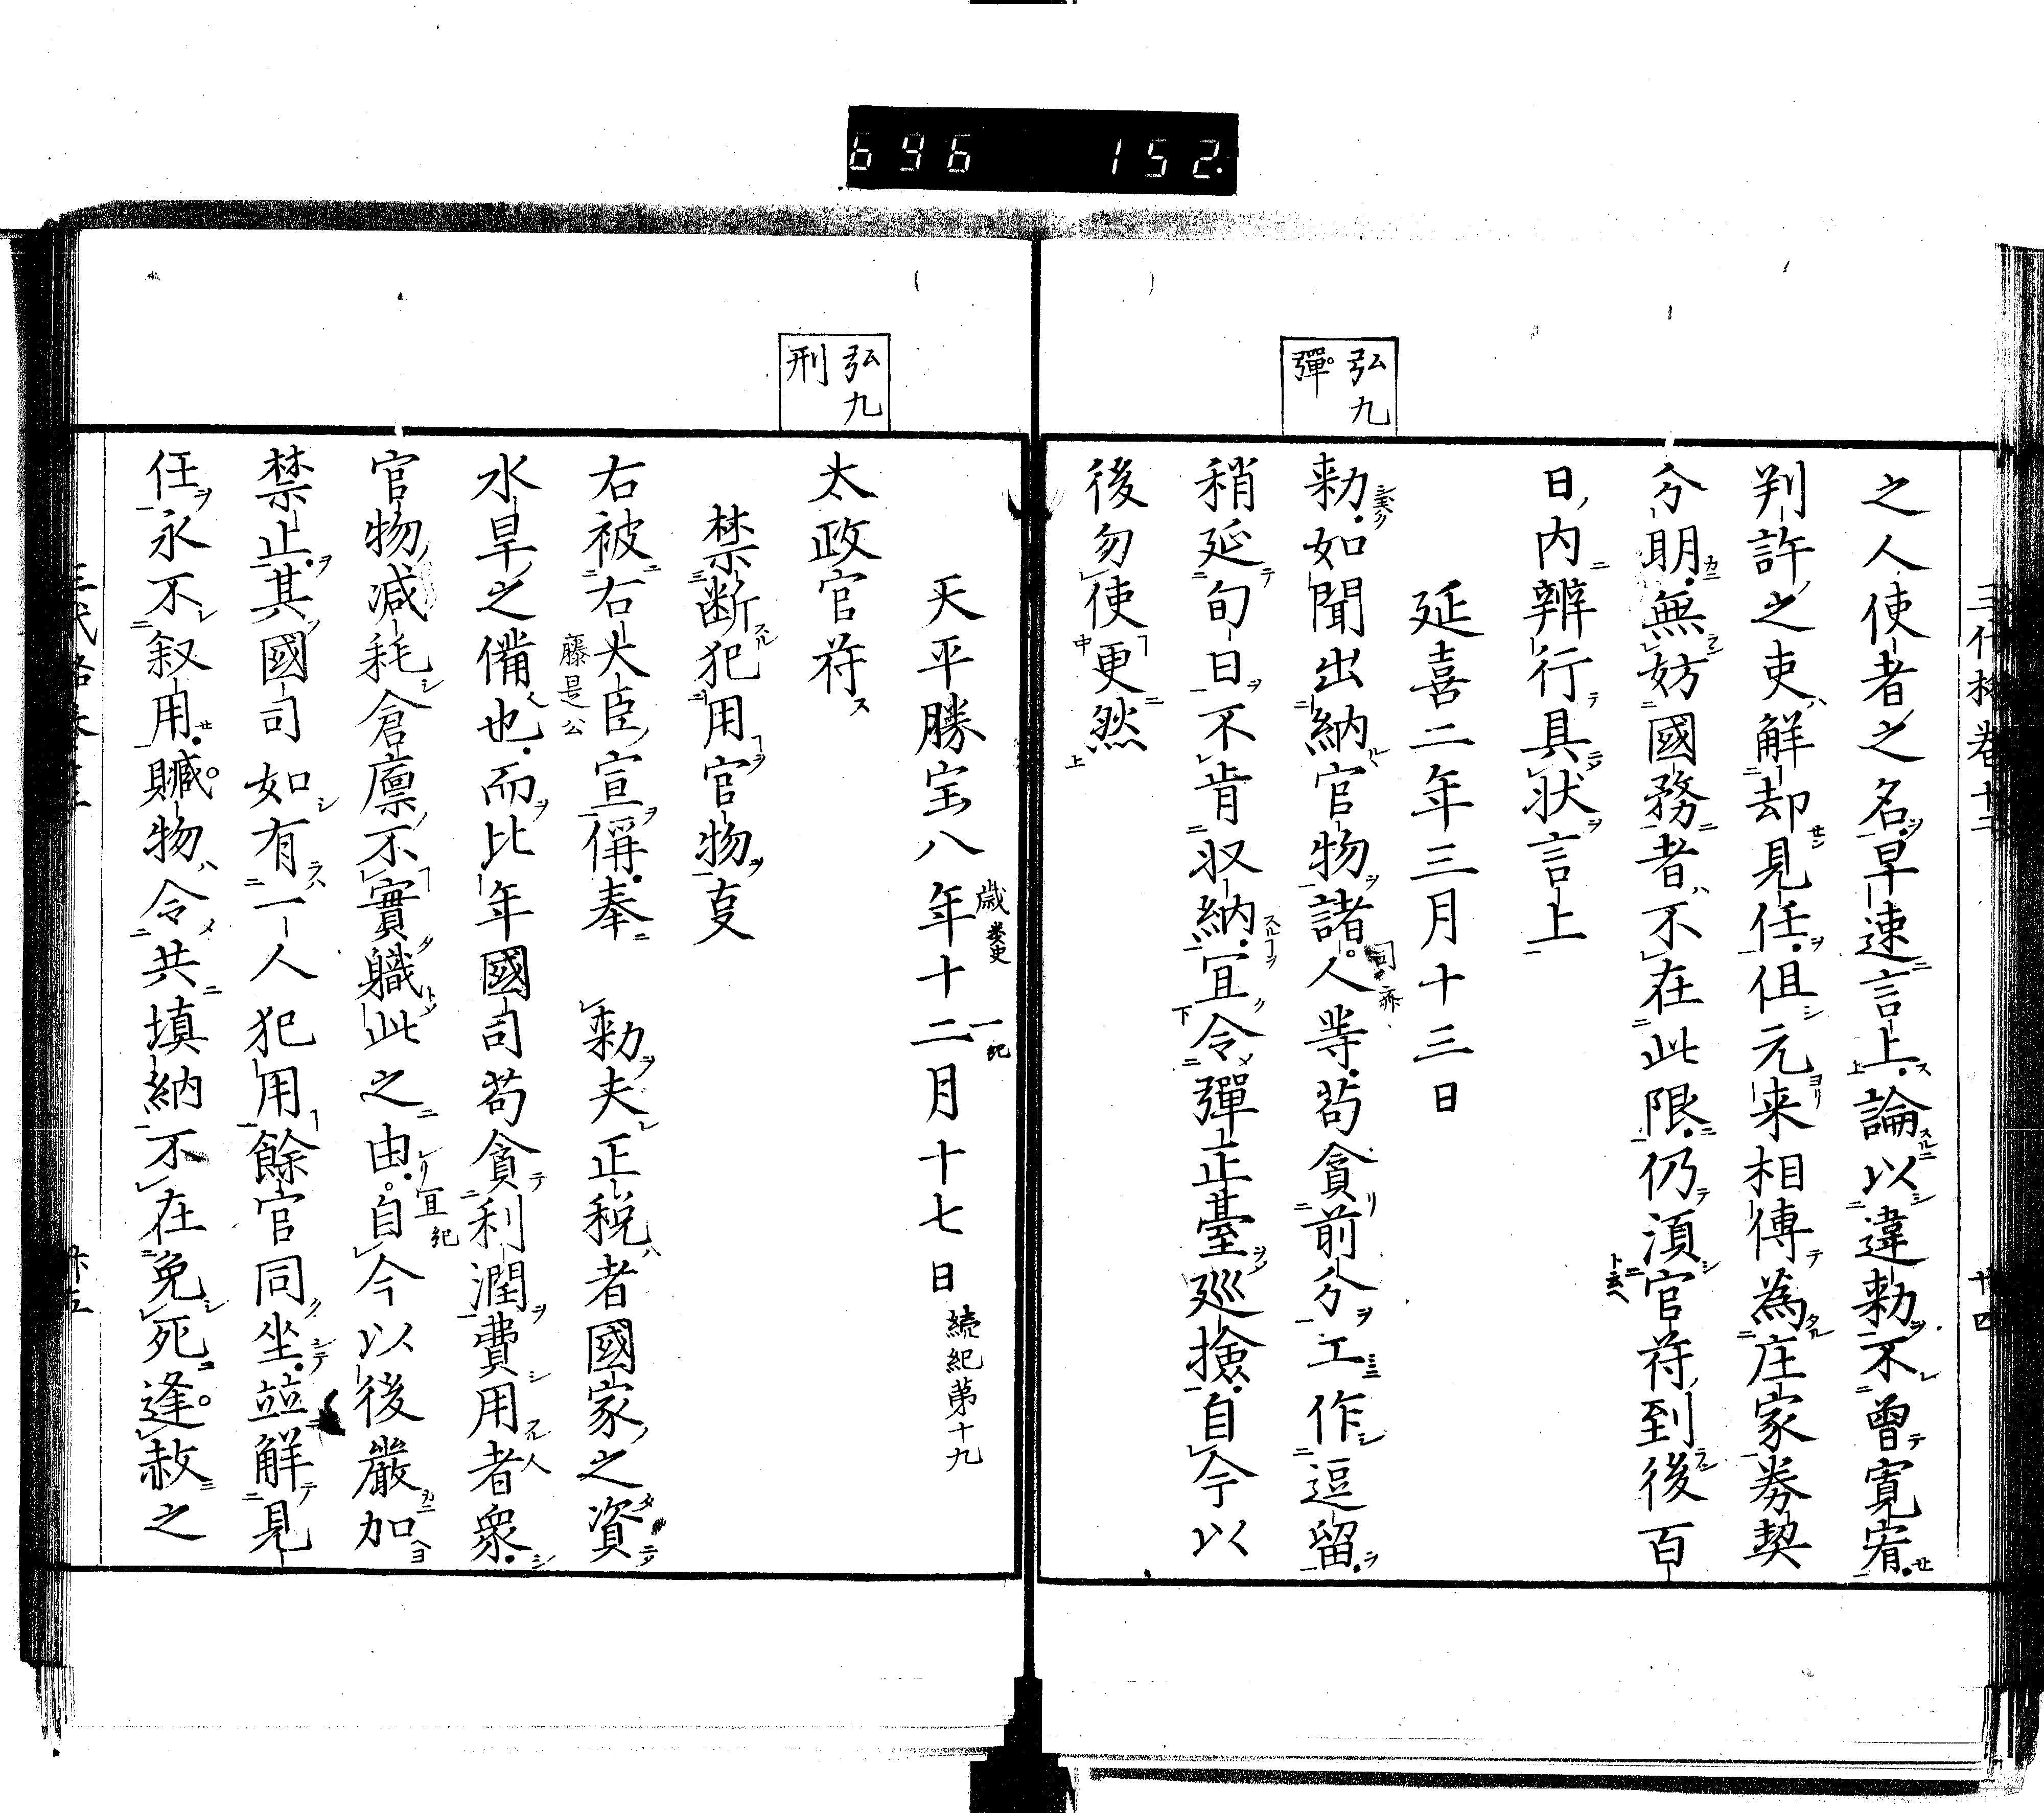 696 152.
三代格卷十二
十四
之人使者之名早速言上論以違勅不曾寛宥
判許之吏解却見任但元来相傳為庄家券契
分明無妨國務者不在此限仍須官符到後百
日内辨行具状言上
延喜二年三月十三日
弘九
彈
勅如聞出納官物諸人等苟貪前分工作逗留
稍延旬日不肯収納宜令彈正臺巡撿自今以
後勿使更然
天平勝宝八年十二月十七日
続紀第十九
弘九
刑
太政官符
禁断犯用官物叓
右被右大臣宣偁奉 勅夫正税者國家之資
藤是公
水旱之備也而比年國司苟貪利潤費用者衆
官物減耗倉廩不實職此之由自今以後嚴加
宜紀
禁止其國司如有一人犯用餘官同坐竝解見
任永不叙用贓物令共填納不在免死逢赦之